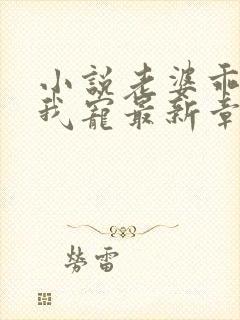 小說老婆乖
我寵最新章
勞雷